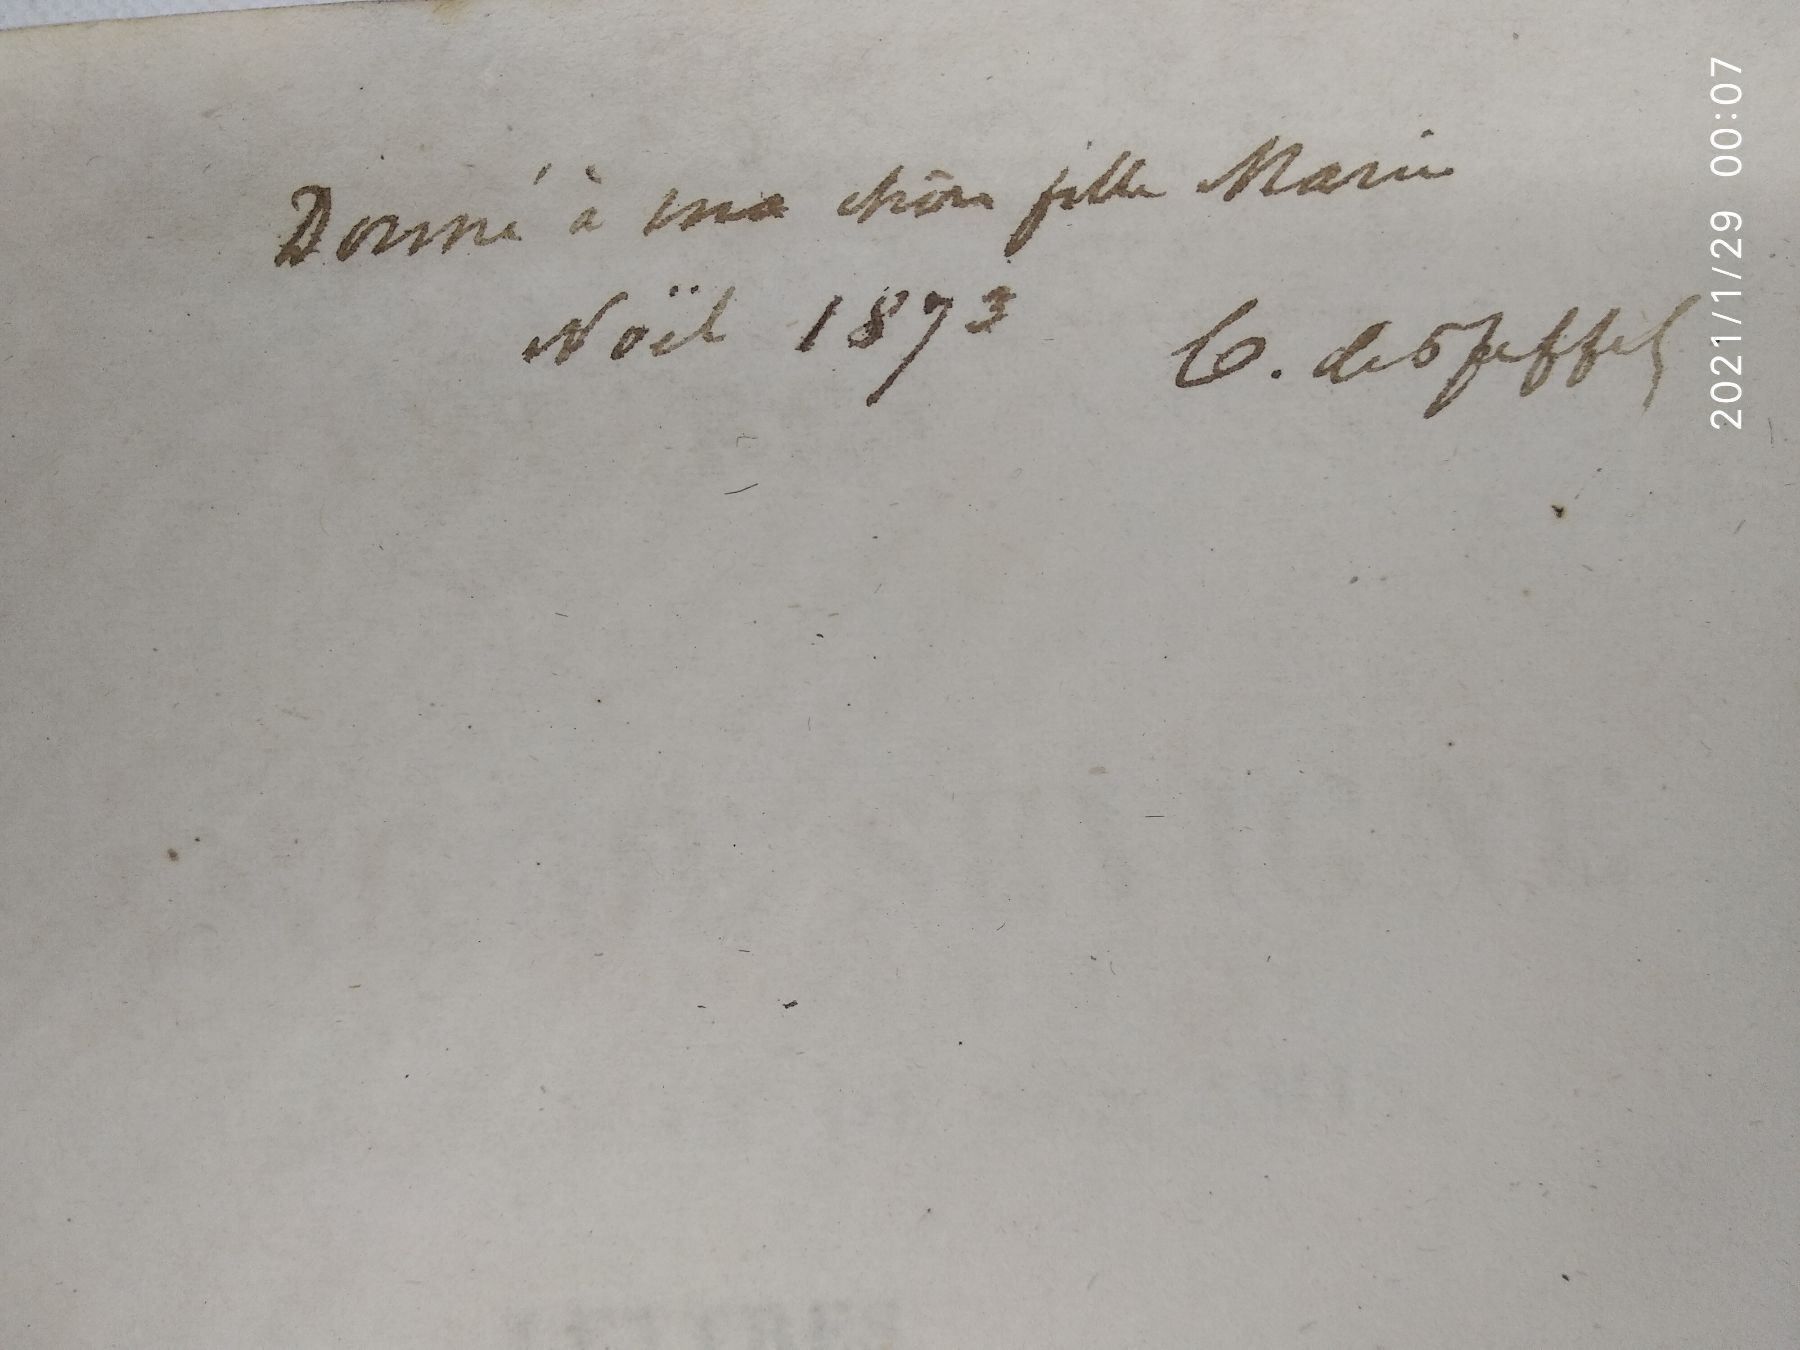 Donné à ma chère fille Marie
Noël 1873 C. de Pfeffel
2021/1/29 00:07